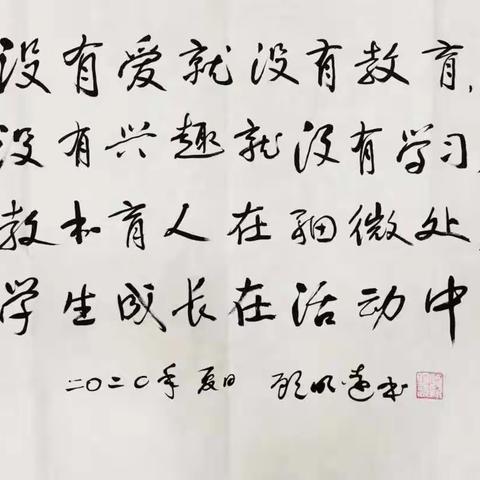 没有爱就没有教育,
没有兴趣就没有学习,
教书育人在细微处,
学生成长在活动中
二〇二〇年夏日 顾明远书